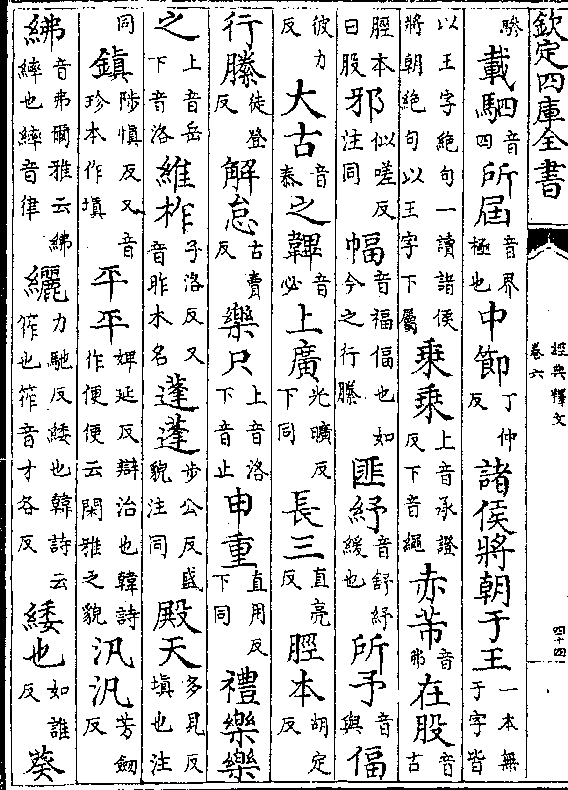 欽定四庫全書
經典釋文
卷六
四十四
驂載駟音四所屆音界極也中節丁仲反諸侯將朝于王一本無于字皆
以王字絶句一讀諸侯將朝絶句以王字下屬乘乘上音承證反下音繩赤芾音弗在股音古
脛本曰股邪似嗟反注同幅音福偪也如今之行縢匪紓音舒紓緩也所予音與偪
彼力反大古音泰之韠音必上廣光曠反下同長三直亮反脛本胡定反
行縢徒登反解怠古賣反樂只上音洛下音止申重直用反下同禮樂樂
之上音岳下音洛維柞子洛反又音昨木名蓬蓬步公反盛貌注同殿天多見反填也注
同鎮陟慎反又音珍本作填平平婢延反辯治也韓詩作便便云閑雅之貌汎汎芳劒反
紼音弗爾雅云紼繂也繂音律纚力馳反緌也韓詩云筰也筰音才各反緌也如誰反葵